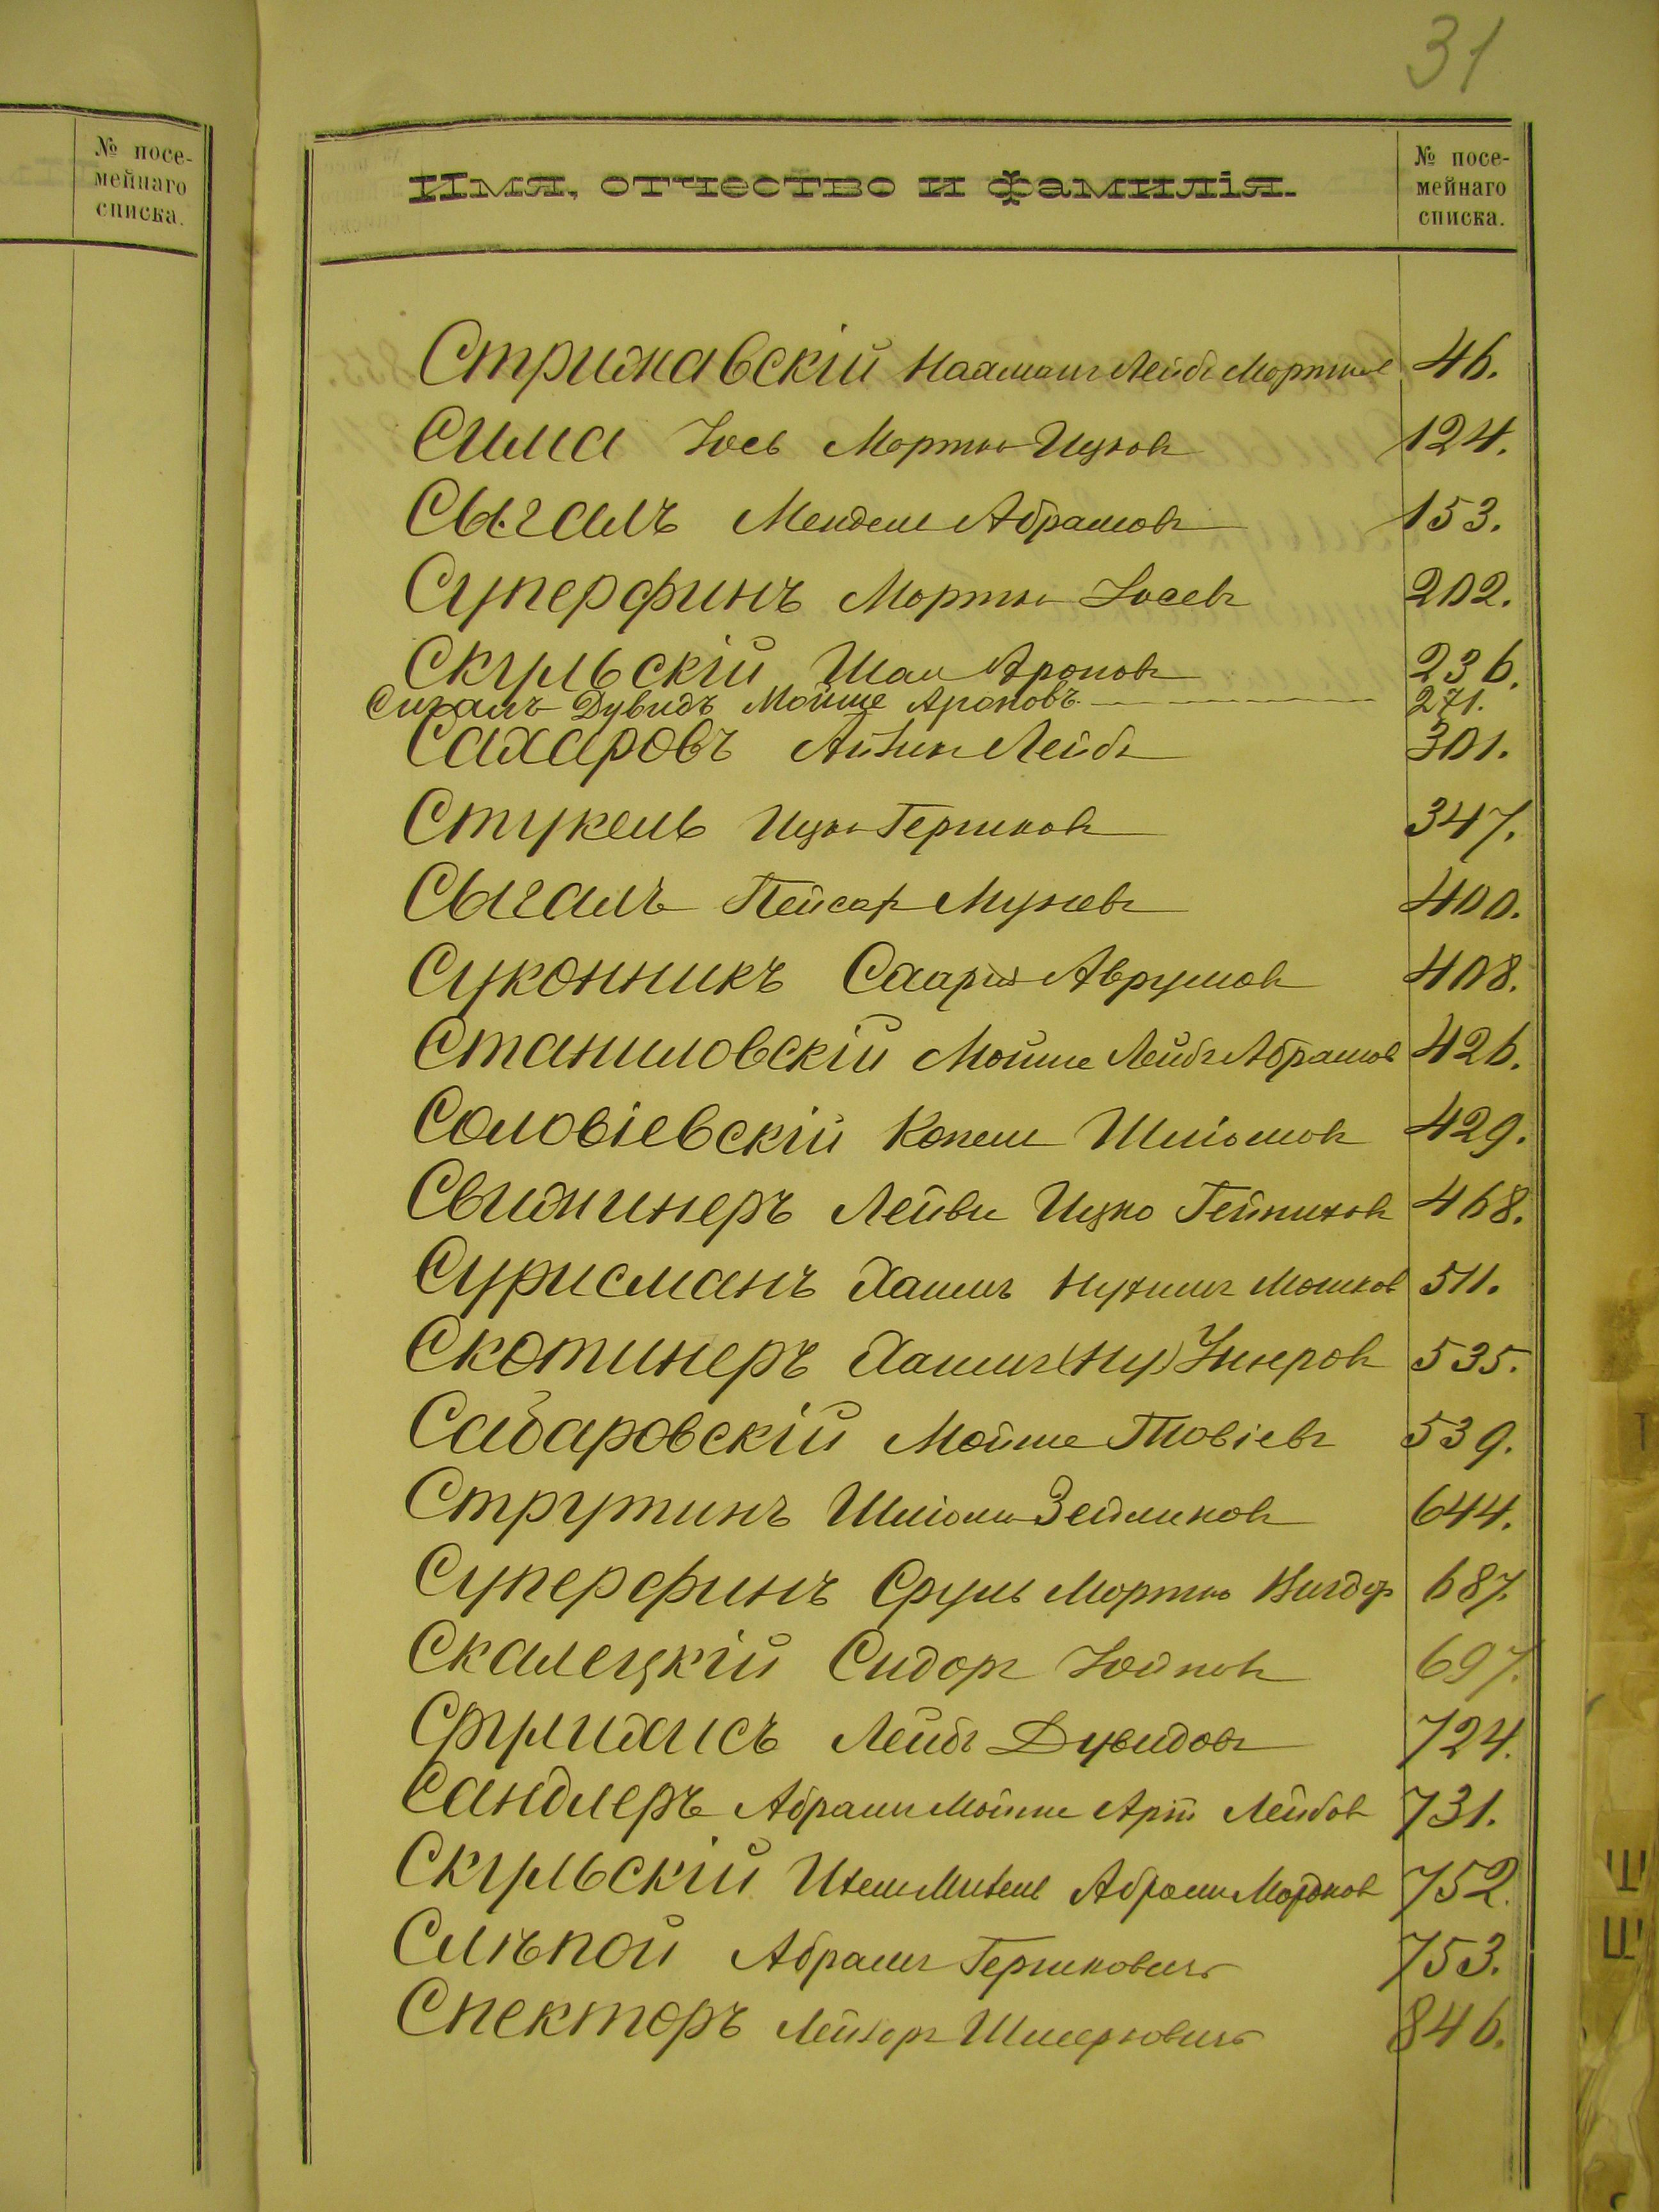 31
№ посе-
мейнаго
списка.
Имя, отчество и фамилія.
№ посе-
мейнаго
списка.
Стрижавскій Лейбъ 46.
Сима Іось Мортко Ицковъ 124.
Сыгалъ Мендель Абрамовъ 153.
Суперфинъ Мортко Іосевъ 202.
Скульскій Шая Ароновъ 236.
Сигалъ Дувидъ Мойше Ароновъ 271.
Сахаровъ Айзикъ Лейбъ 301.
Стукель Ицко Гершковъ 347.
Сыгалъ Пейсах 400.
Суконникъ Аврумовъ 408.
Станиловскій Мойше Лейбъ Абрамов 426.
Соловіевскій Копель Шліомовъ 429.
Свижинеръ Лейви Ицко 468.
Сурисманъ Хаимъ Нухимъ Мошков 511.
Скотинеръ Хаимъ (Ну) 535.
Сабаровскій Мойше Товіевъ 539.
Струтинъ Шліома Зейликовъ 644.
Суперфинъ Сруль Мортко 687.
Скалецкій Сидоръ 697.
Лейбъ Дувидовъ 724.
Сандлеръ Абрамъ Мойше Лейбов 731.
Скульскій Абрамъ Мордков 752.
Слѣпой Абрамъ Гершковичъ 753.
Спекторъ Лейзоръ Шмерковичъ 846.